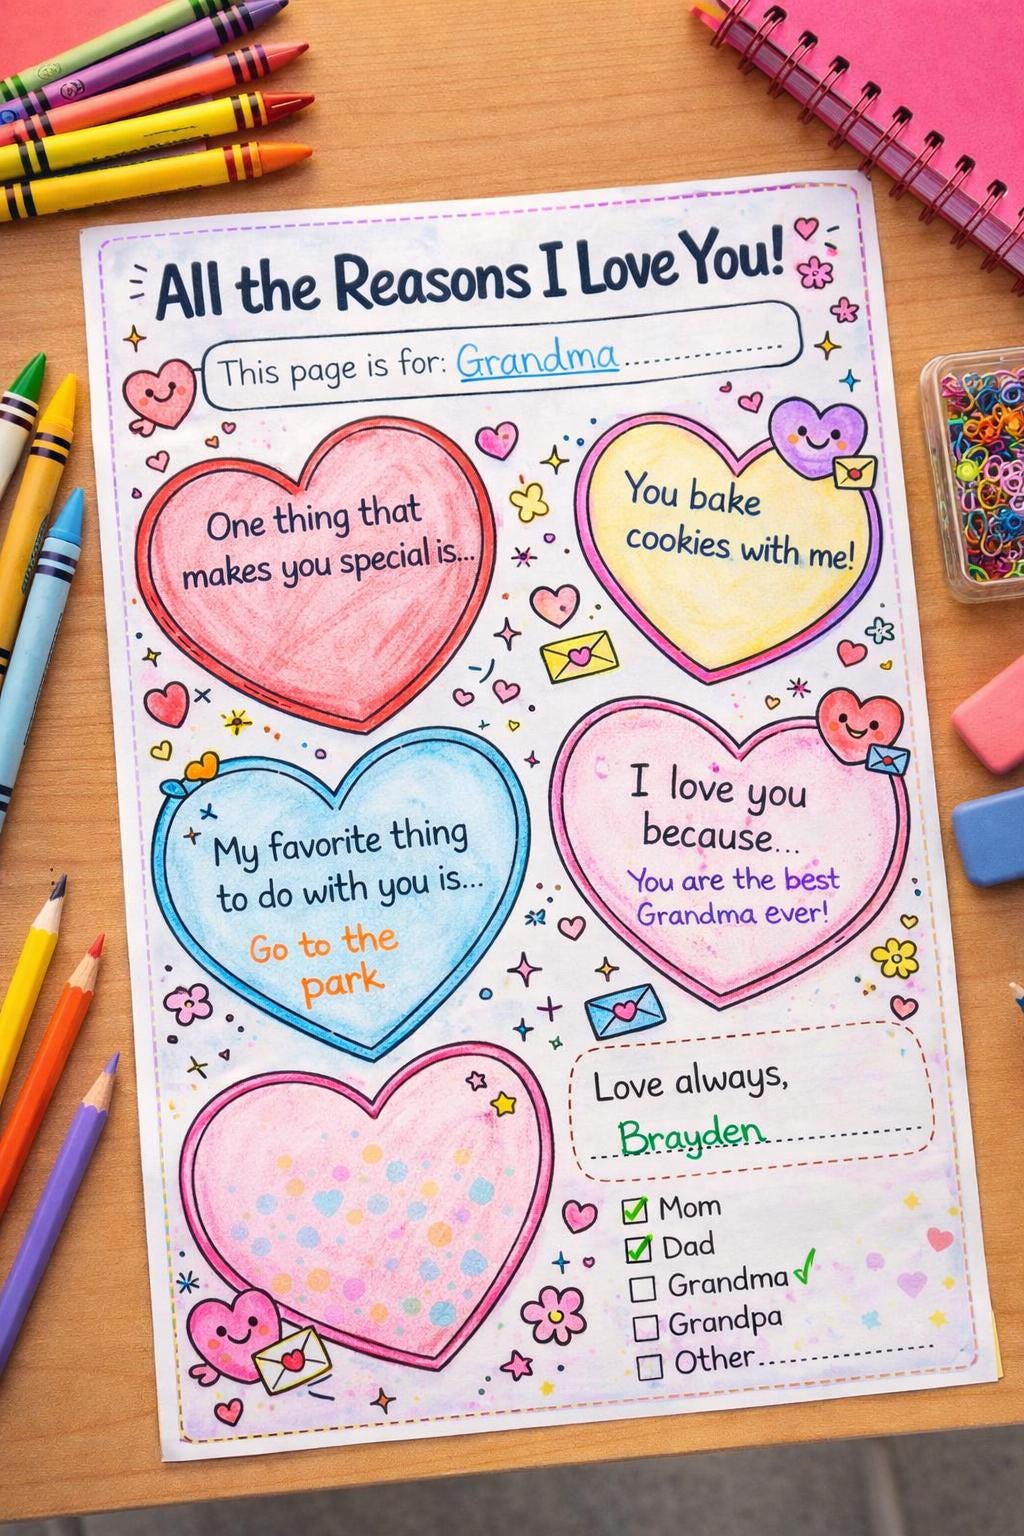 All the Reasons I Love You!
This page is for: Grandma
One thing that
makes you special is...
You bake
cookies with me!
My favorite thing
to do with you is...
Go to the
park
I love you
because...
You are the best
Grandma ever!
Love always,
Brayden
Mom
Dad
Grandma
Grandpa
Other